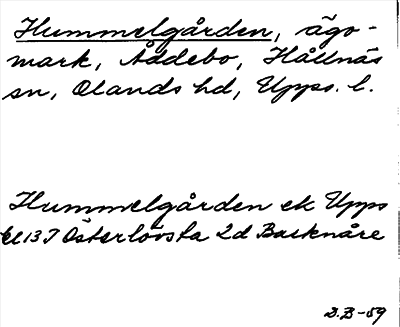 Hummelgården, ägo-
mark, Åddebo, Hållnäs
sn, Olands hd, Upps. l.
Hummelgården ek Upps
bl 13 J Österlövsta 2d Backnåre
B.B-59